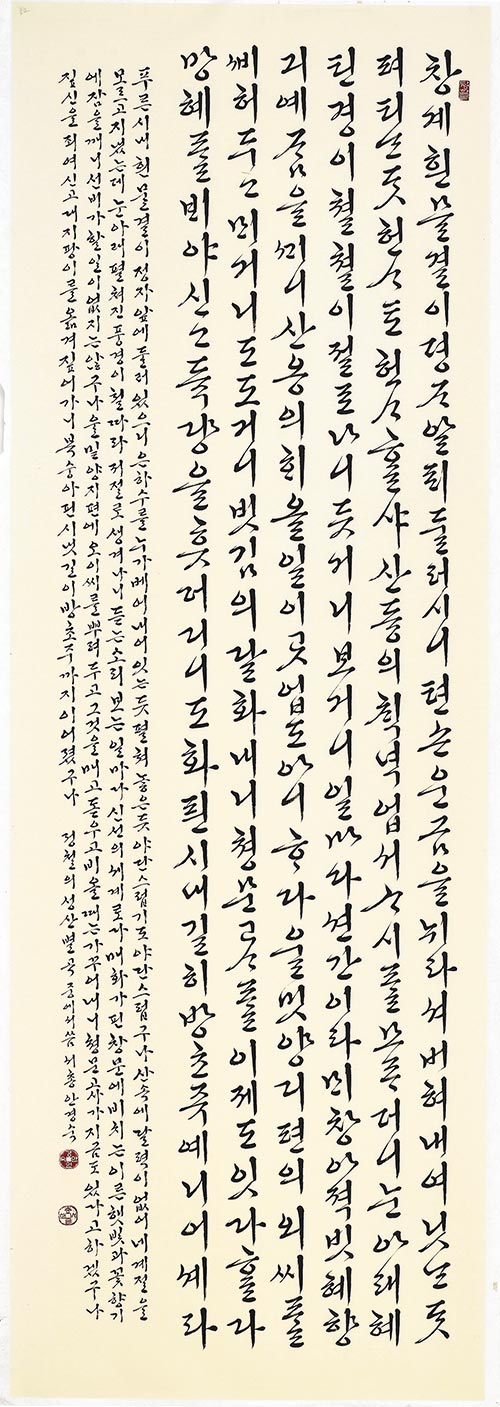 창계흰믈결이뎡ᄌᆞ알ᄑᆡ둘러시니텬손운금을뉘라셔버혀내여닛ᄂᆞᆫ듯
펴티ᄂᆞᆫ듯헌ᄉᆞ토헌ᄉᆞᄒᆞᆯ샤산듕의ᄎᆡᆨ녁업서ᄉᆞ시ᄅᆞᆯ모ᄅᆞ더니눈아래헤
틴경이철철이절로나니듯거니보거니일마다션간이라ᄆᆡ창아젹벗혜향
긔예ᄌᆞᆷ을ᄭᆡ니산옹의ᄒᆡ욜일이곳업도아니ᄒᆞ다울밋양디편의외씨ᄅᆞᆯ
ᄲᅵ허두고ᄆᆡ거니도도거니빗김의달화내니쳥문고ᄉᆞᄅᆞᆯ이제도잇다ᄒᆞᆯ다
망혜ᄅᆞᆯ뵈야신고듁댱을흣더디니도화픤시내길히방초쥬예니어셰라
푸른시내흰물결이정자앞에둘러있으니은하수를누가베어내어잇는듯펼쳐놓은듯야단스럽기도야단스럽구나산속에달력이없어네계절을
모르고지냈는데눈아래펼쳐진풍경이철따라저절로생겨나니듣는소리보는일마다신선의세계로다매화가핀창문에비치는이른햇빛과꽃향기
에잠을깨니선비가할일이없지는않구나울밑양지편에오이씨를뿌려두고그것을매고돋우고비올때는가꾸어내니청문고사가지금도있다고하겠구나
짚신을죄여신고대지팡이를옮겨짚어가니복숭아핀시냇길이방초주까지이어졌구나 정철의성산별곡중에서씀 서총안경숙